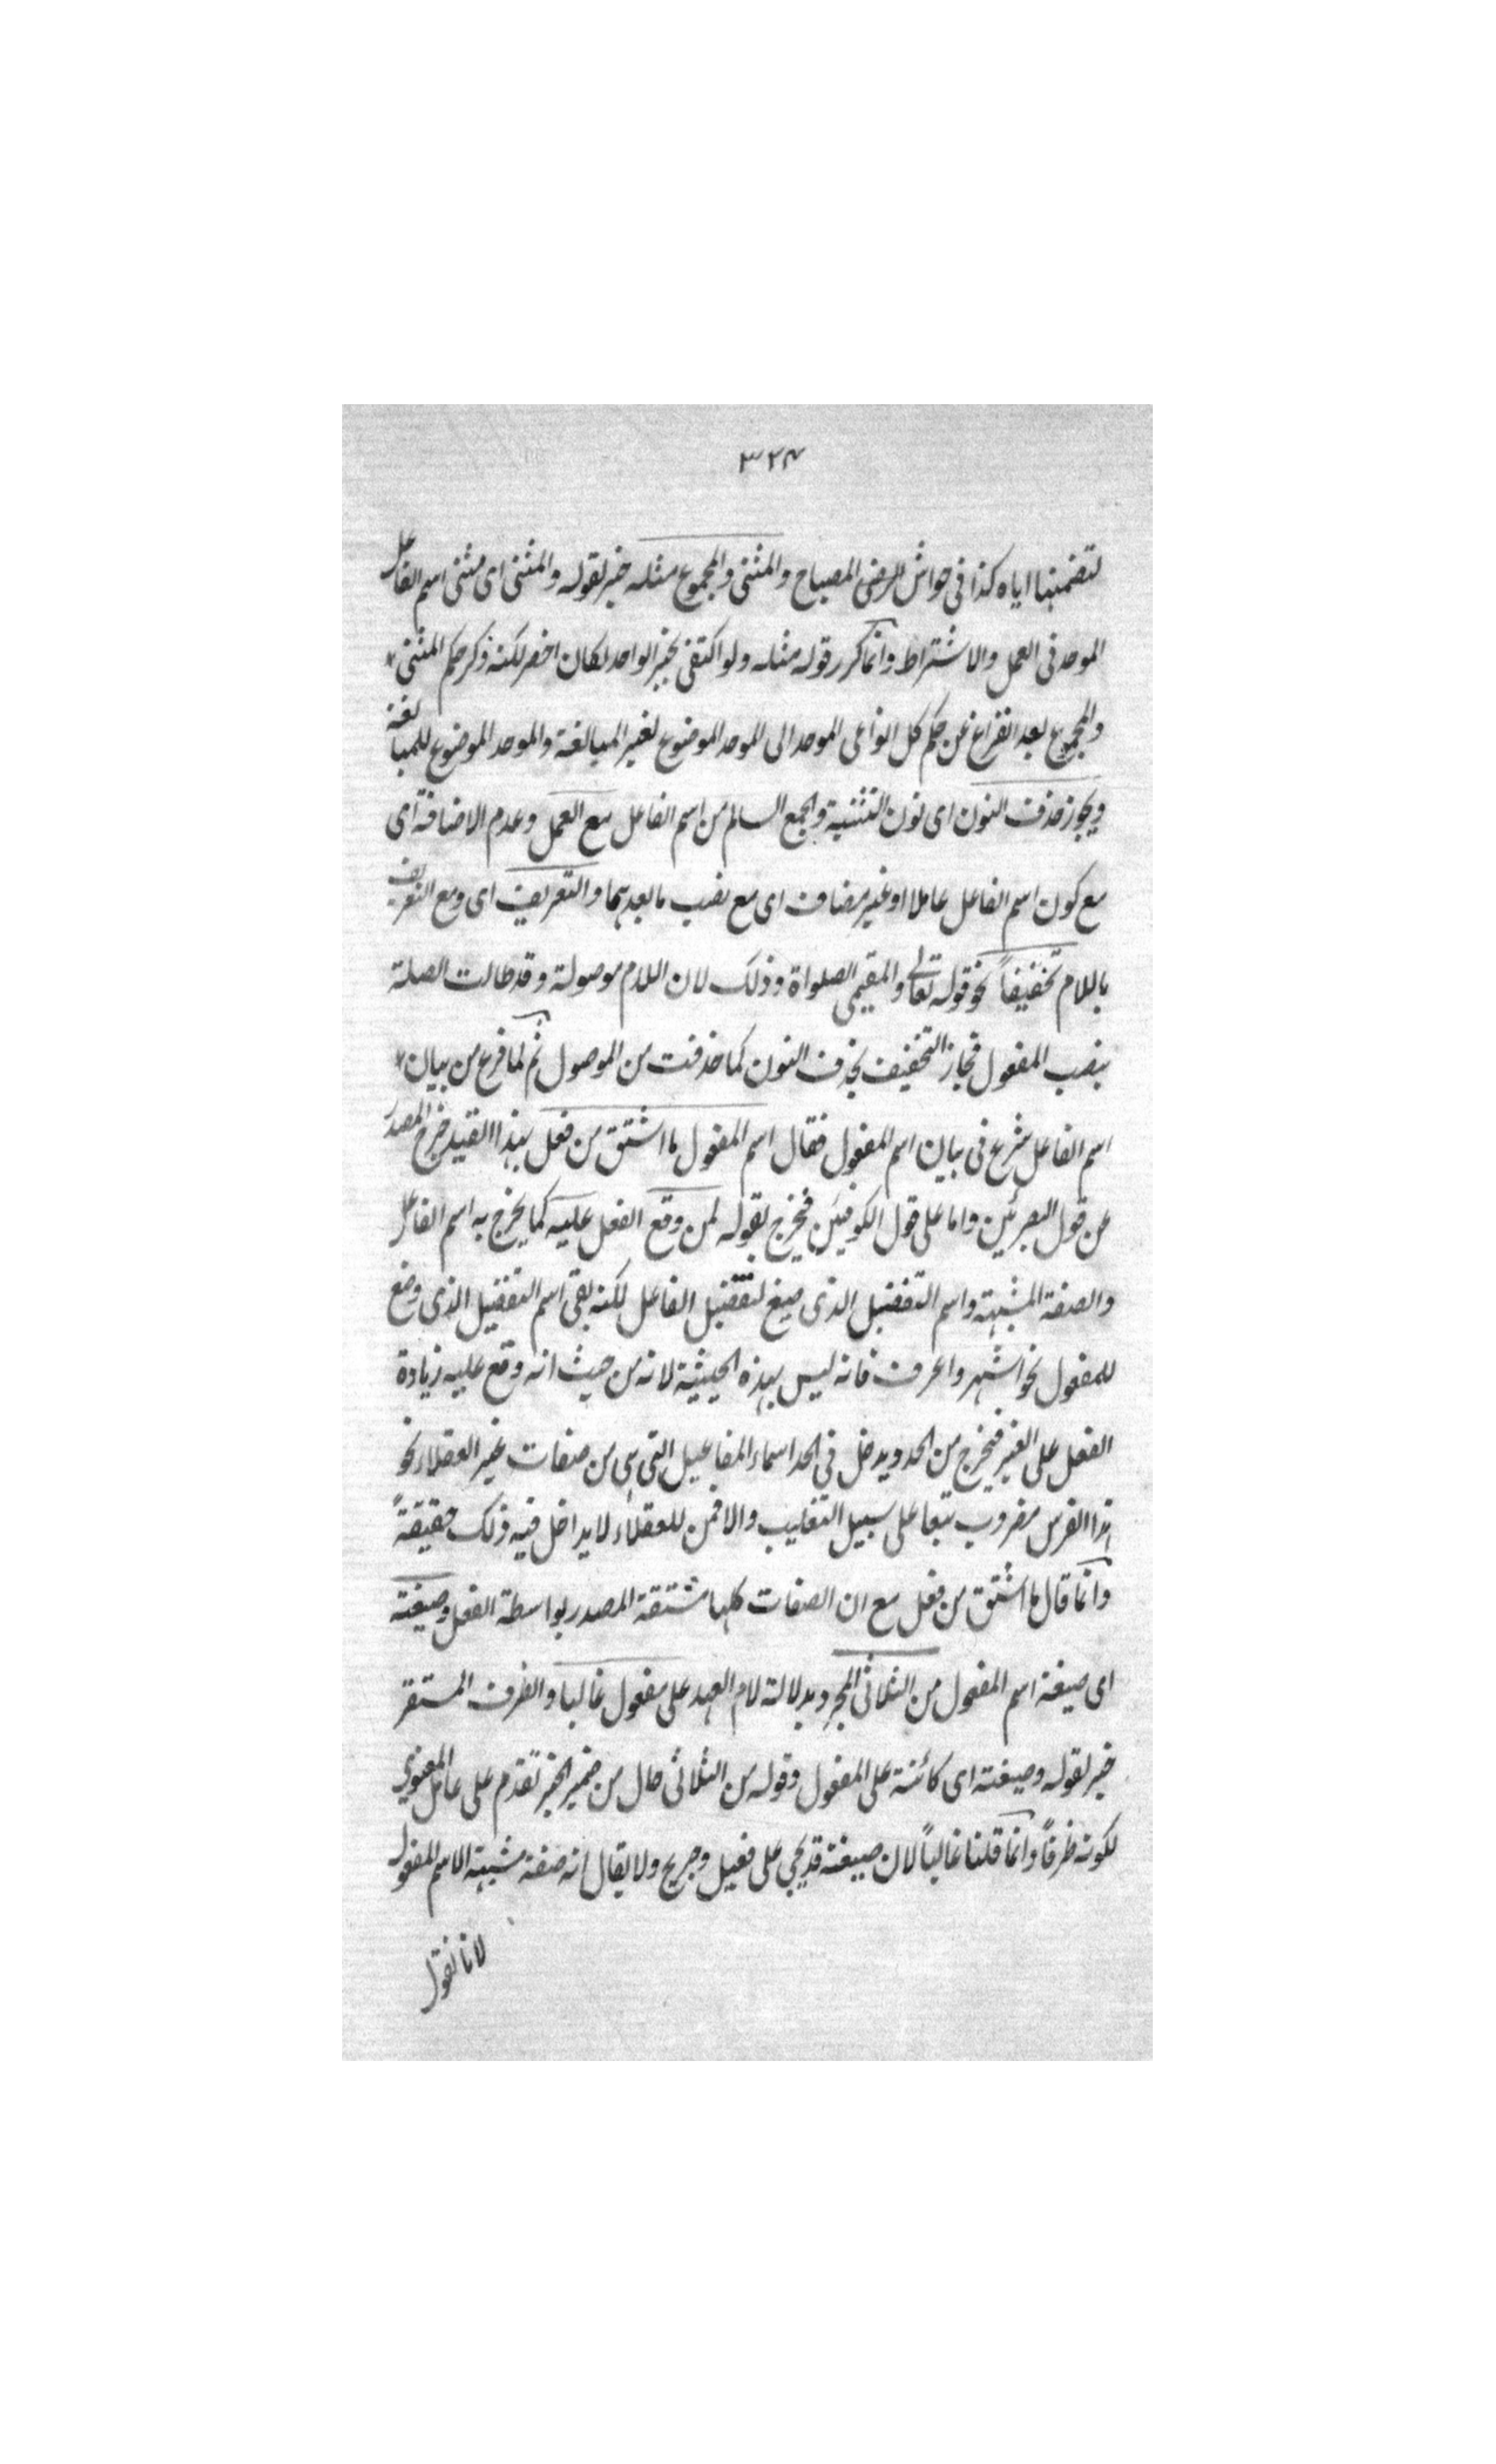 ٣٢٤
لتضمنها اياه كذا في حواش الرضى المصباح والمثنى والمجموع مثله خبر لقوله والمثنى اى مثنى اسم الفاعل
الموحد في العمل والاشتراط وانما كرر قوله مثله ولو اكتفى بخبر الواحد لكان اخصر لكنه ذكر حكم المثنى
والمجموع بعد الفراغ عن حكم كل انواعى الموحد الى الموحد الموضوع لغير المبالغة والموحد الموضوع للمبالغة
ويجوز حذف النون اى نون التثنية والجمع السالم من اسم الفاعل مع العمل وعدم الاضافة اى
مع كون اسم الفاعل عاملا او غير مضاف اى مع نصب ما بعدهما والتعريف اى ومع التعريف
باللام تخفيفاً نحو قوله تعالى والمقيمى الصلواة وذلك لان اللام موصولة وقد طالت الصلة
بنصب المفعول فجاز التخفيف بحذف النون كما حذفت من الموصول ثم لما فرغ من بيان
اسم الفاعل شرع في بيان اسم المفعول فقال اسم المفعول ما اشتق من فعل بهذا القيد خرج المصدر
عن قول البصرئين واما على قول الكوفيين فيخرج بقوله لمن وقع الفعل عليه كما يخرج به اسم الفاعل
والصفة المشبهة واسم التفضيل الذى صيغ لتفضيل الفاعل لكنه بقى اسم التفضيل الذى وضع
للمفعول نحو اشهر واعرف فانه ليس بهذه الحيثية لانه من حيث انه وقع عليه زيادة
الفعل على الغير فيخرج من الحد ويدخل في الحد اسماء المفاعيل التى هى من صفات غير العقلاء نحو
هذا الفرس مضروب تبعا على سبيل التغليب والا فمن للعقلاء لا يداخل فيه ذلك حقيقةً
وانما قال ما اشتق من فعل مع ان الصفات كلها مشتقة المصدر بواسطة الفعل وصيغته
اى صيغة اسم المفعول من الثلاثى المجرد بدلالة لام العهد على مفعول غالبا والظرف المستقر
خبر لقوله وصيغته اى كائنة على المفعول وقوله من الثلاثى حال من ضمير الخبر تقدم على عامل المعنوي
لكونه ظرفاً وانما قلنا غالباً لان صيغته قد يجى على فعيل وجريح ولا يقال انه صفة مشبهة الاسم المفعول
لانا نقول